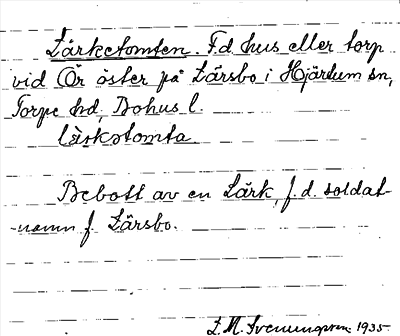 Lärketomten. F.d. hus eller torp
vid Ör öster på Lärsbo i Hjärtum sn,
Torpe hd, Bohus l.
lärketomta
Bebott av en Lärk, f.d. soldat-
namn f. Lärsbo.
L. M. Svenungsson 1935